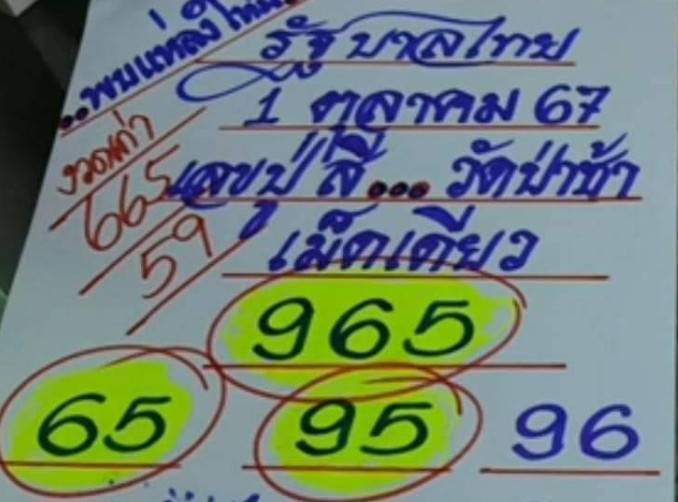 ..พบแหล่งใหม่
รัฐบาลไทย
1 ตุลาคม 67
งวดเก่า
665
59
เลขปู่สี... วัดป่าช้า
เม็ดเดียว
965
65 95 96